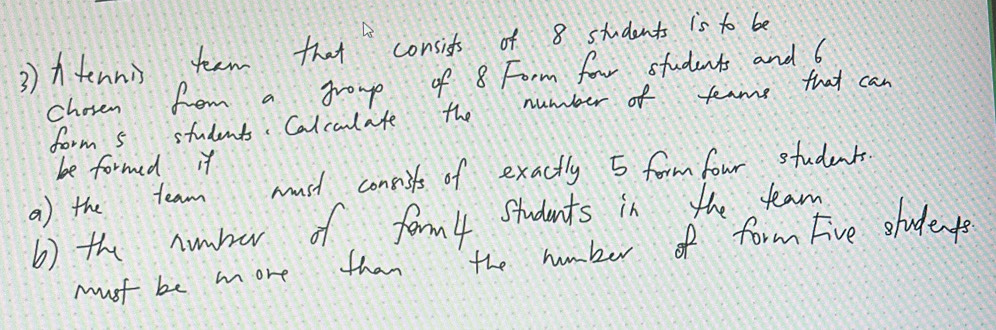 3) A tennis team that consists of 8 students is to be
chosen from a group of 8 Form four students and 6
form 5 students. Calculate the number of teams that can
be formed if
a) the team must consists of exactly 5 form four students.
b) the number of form 4 students in the team
must be more than the number of form Five students.